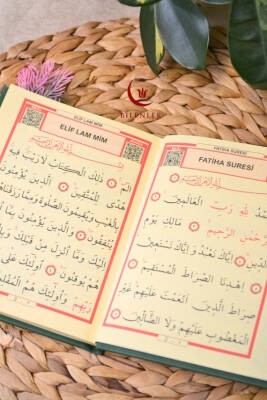 BİLENLER
ELİF LAM MİM
ELİF LAM MİM
الم ذلك الكتاب لا ريب فيه
هدى للمتقين الذين يؤمنون
بالغيب ويقيمون الصلوة ومما رزقناهم
ينفقون والذين يؤمنون بما
اليك وما انزل من قبلك
هم يوقنون اولئك على
ربهم واولئك هم المفلحون
FATİHA SURESİ
FATİHA SURESİ
لله رب العالمين
الرحمن الرحيم مالك يوم
الدين اياك نعبد واياك نستعين
اهدنا الصراط المستقيم
صراط الذين انعمت عليهم غير
المغضوب عليهم ولا الضالين